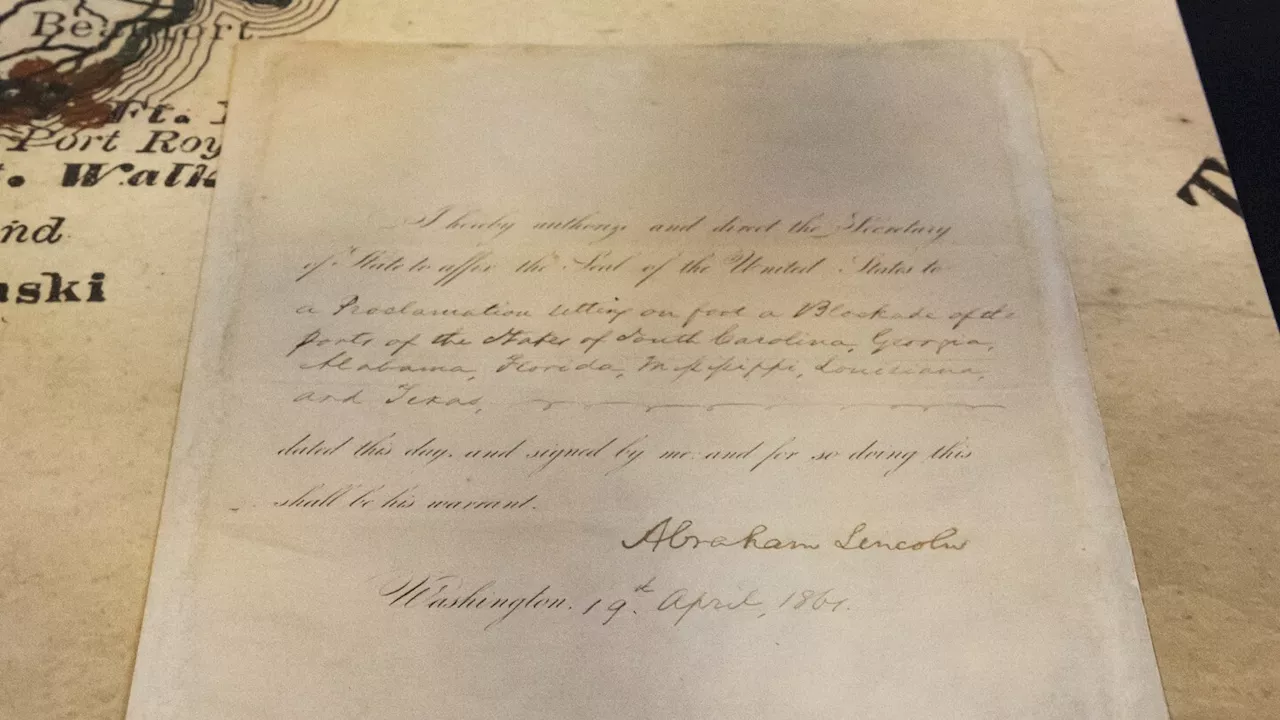 Beaufort
Ft.
Port Roy
. Walk
nd
aski
T
I hereby authorize and direct the Secretary
of State to affix the Seal of the United States to
a Proclamation setting on foot a Blockade of the
ports of the States of South Carolina, Georgia,
Alabama, Florida, Mississippi, Louisiana,
and Texas,
dated this day, and signed by me and for so doing this
shall be his warrant.
Abraham Lincoln
Washington, 19th April, 1861.